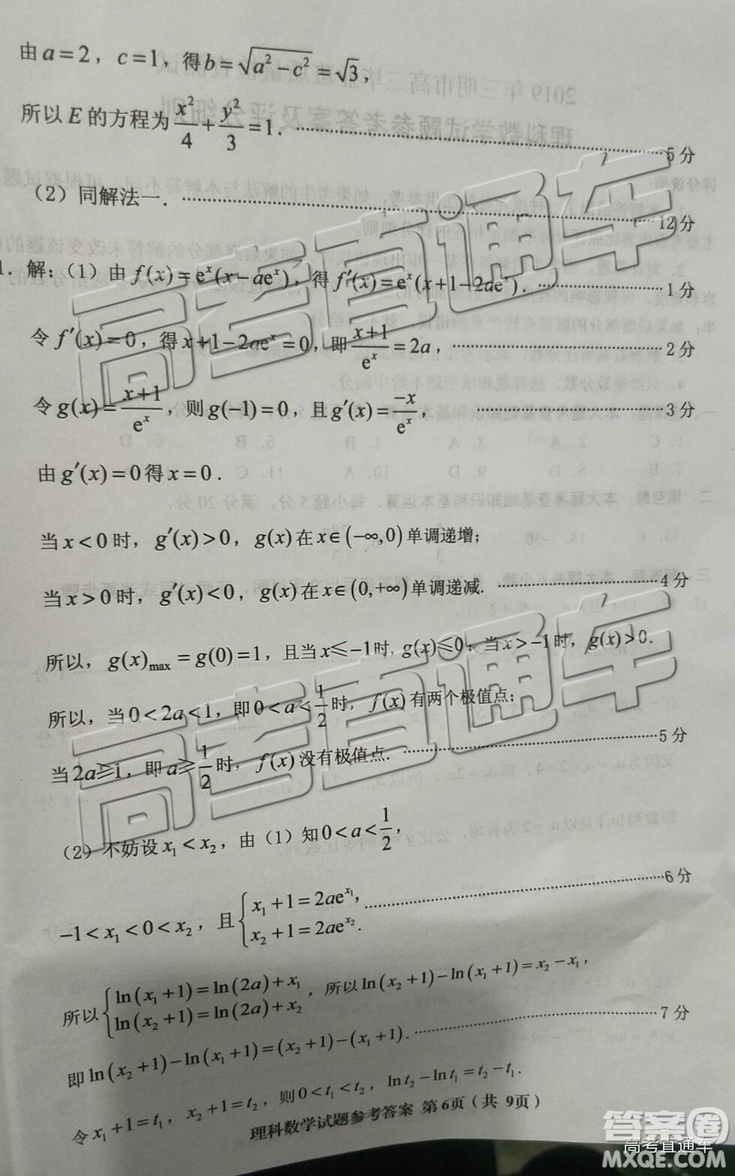 由a=2，c=1，得b=√(a²-c²)=√3，
所以E的方程为x²/4+y²/3=1．……5分
（2）同解法一．……12分
1．解：（1）由f(x)=eˣ(x-aeˣ)，得f′(x)=eˣ(x+1-2aeˣ)．……1分
令f′(x)=0，得x+1-2aeˣ=0，即(x+1)/eˣ=2a，……2分
令g(x)=(x+1)/eˣ，则g(-1)=0，且g′(x)=-x/eˣ，……3分
由g′(x)=0得x=0．
当x<0时，g′(x)>0，g(x)在x∈(-∞,0)单调递增；
当x>0时，g′(x)<0，g(x)在x∈(0,+∞)单调递减．……4分
所以，g(x)max=g(0)=1，且当x≤-1时，g(x)≤0；当x>-1时，g(x)>0．
所以，当0<2a<1，即0<a<1/2时，f(x)有两个极值点；
当2a≥1，即a≥1/2时，f(x)没有极值点．……5分
（2）不妨设x₁<x₂，由（1）知0<a<1/2，
-1<x₁<0<x₂，且{x₁+1=2ae^x₁，x₂+1=2ae^x₂．……6分
所以{ln(x₁+1)=ln(2a)+x₁ ln(x₂+1)=ln(2a)+x₂，所以ln(x₂+1)-ln(x₁+1)=x₂-x₁，
即ln(x₂+1)-ln(x₁+1)=(x₂+1)-(x₁+1)．……7分
令x₁+1=t₁，x₂+1=t₂，则0<t₁<t₂，lnt₂-lnt₁=t₂-t₁．
理科数学试题参考答案 第6页（共 9页）
高考直通车
高考直通车
答案圈
高考直通车
MXQE.COM